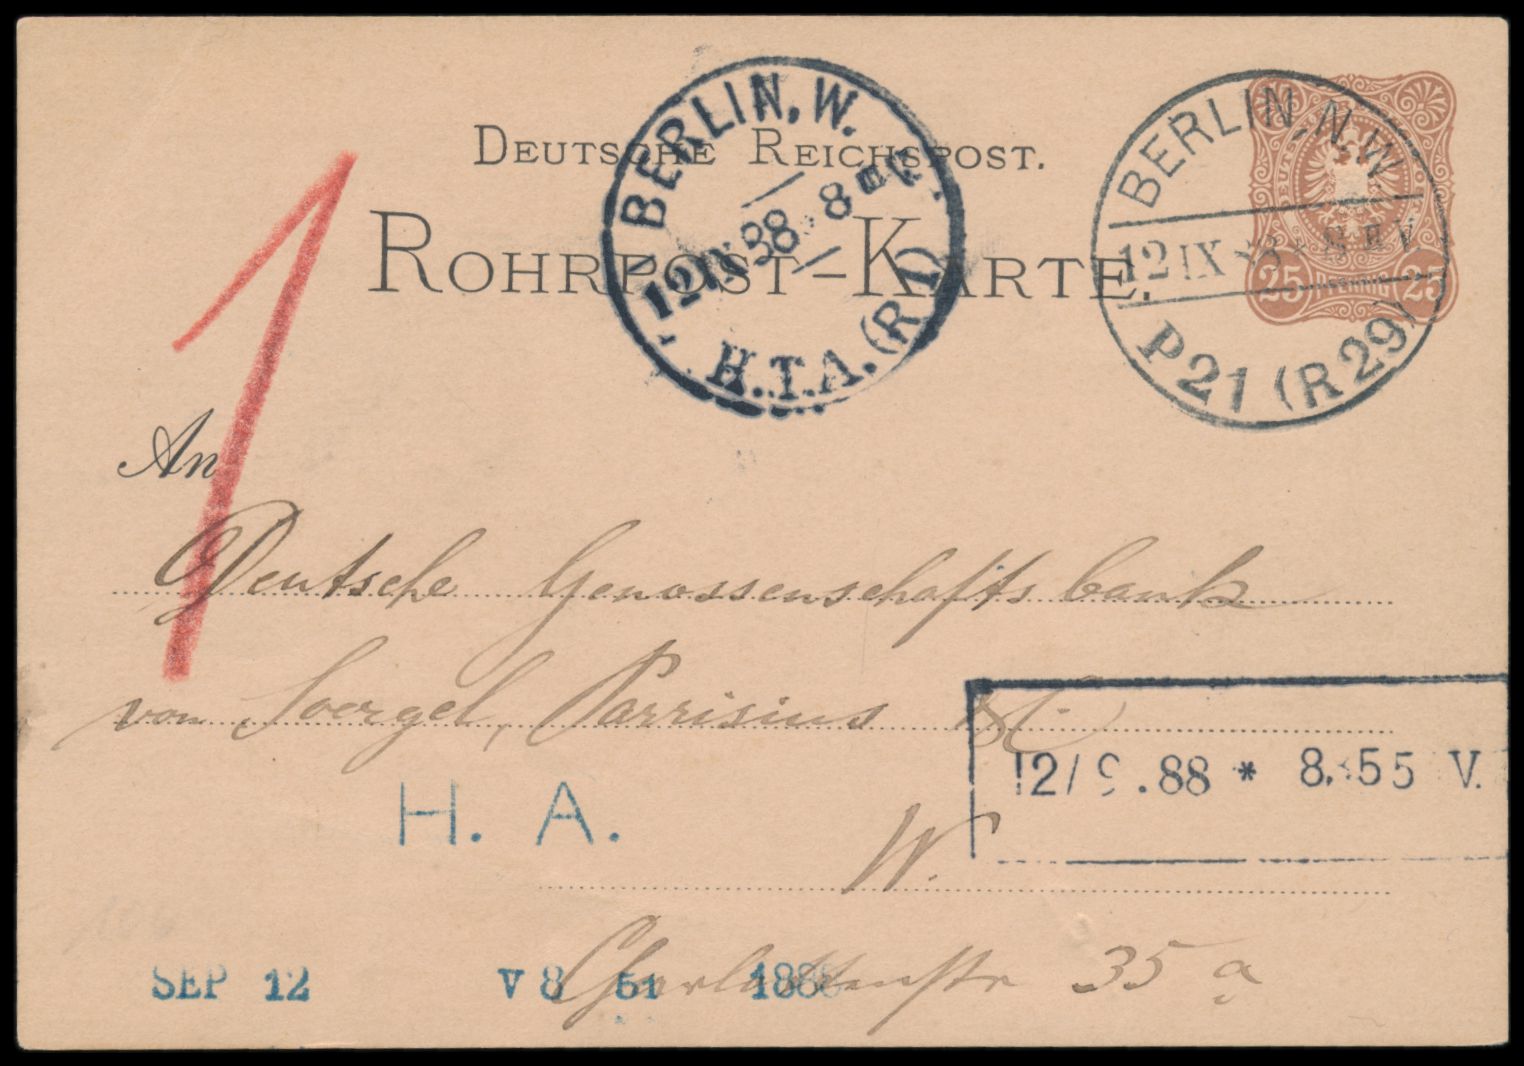 DEUTSCHE REICHSPOST.
ROHRPOST-KARTE.
BERLIN, W.
12 IX 88 8
H.T.A. (R 1)
BERLIN-N.W.
12 IX 88 * 8
P 21 (R 29)
25 PFENNIG 25
1
An
Deutsche Genossenschaftsbank
von Soergel, Parrisius &C.
12/9.88 * 8.55 V.
H. A.
W.
SEP 12 V 8 51 1888
Charlottenstr 35 a